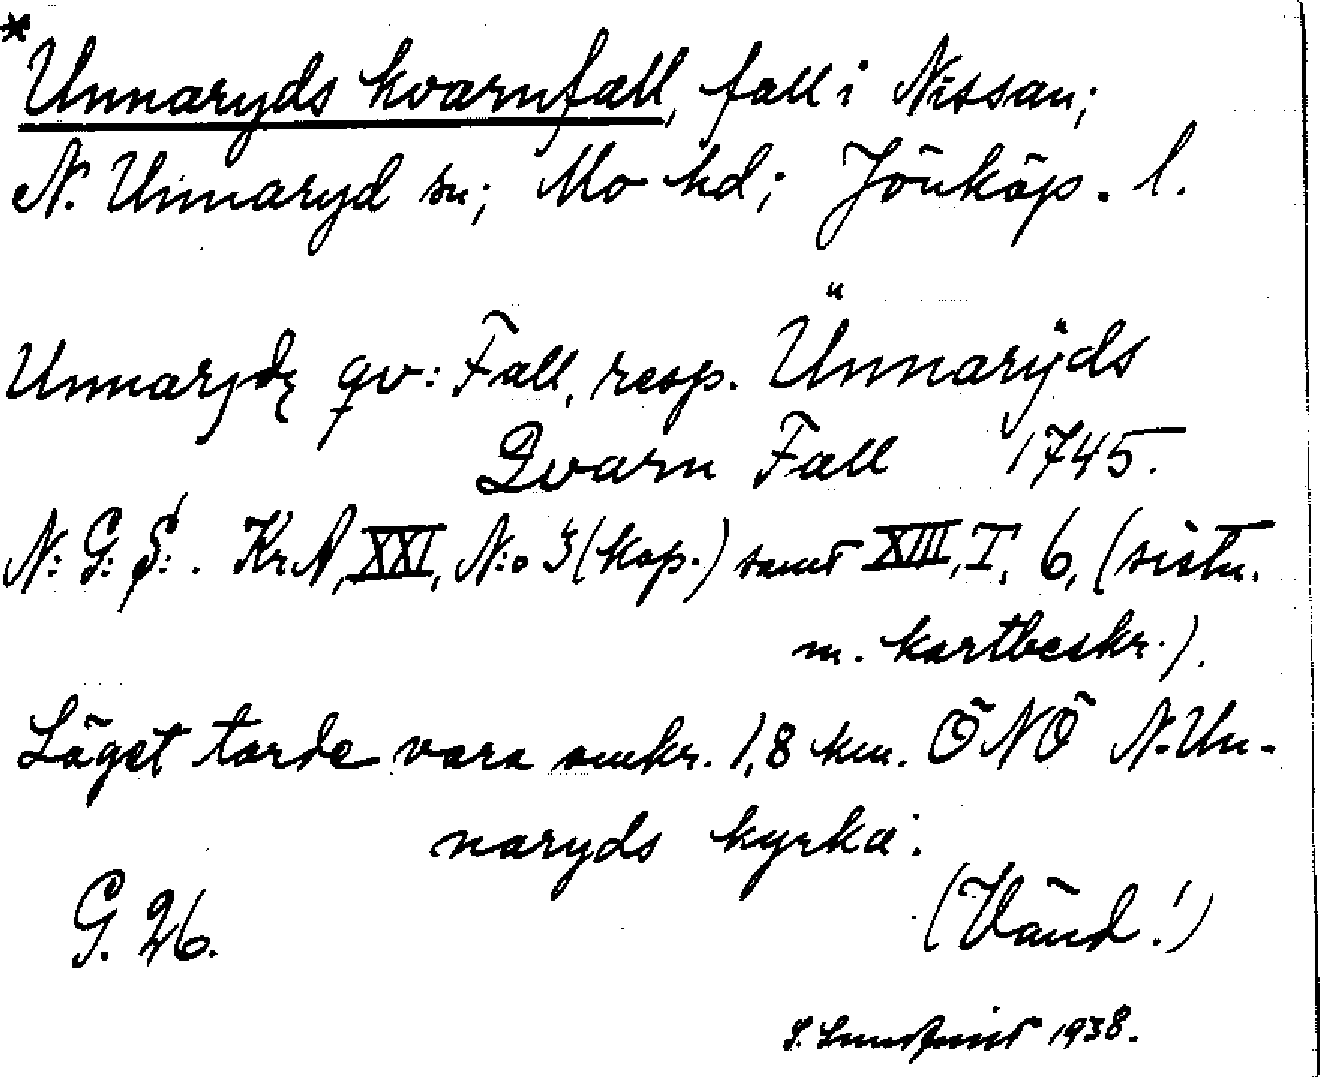 *Unnaryds kvarnfall, fall i Nissan;
N. Unnaryd sn; Mo hd; Jönköp. l.
Unnaryds qv: Fall, resp. Ünnarÿds
Qvarn Fall 1745.
N: G: S: . Kr.A, XXI, N:o 3 (kop.) samt XIII, I, 6, (sistn.
m. kartbeskr.).
Läget torde vara omkr. 1,8 km. ÖNÖ N. Un-
naryds kyrka.
G. 26.
(Vänd!)
S. Lundqvist 1938.